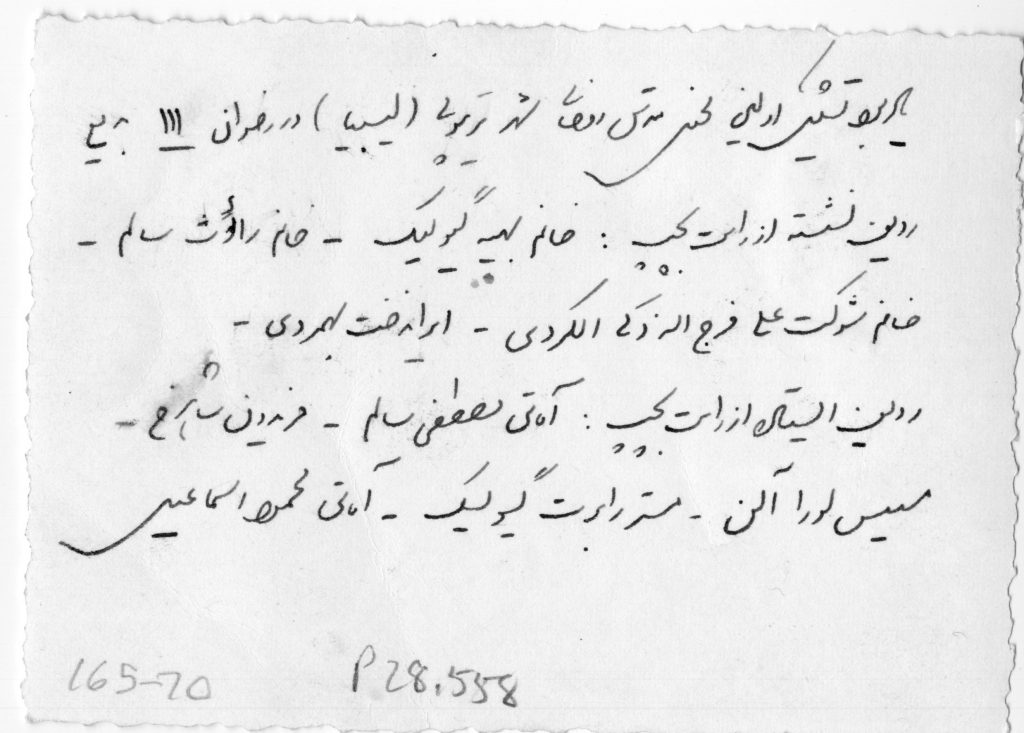 یادبود تشکیل اولین محفل مقدس روحانی شهر تریپولی (لیبیا) در رضوان ١١١ بدیع
ردیف نشسته از راست بچپ : خانم بهیه گیولیک - خانم رأفت سالم -
خانم شوکت علی فرج اله زکی الکردی - ایراندخت بهمردی -
ردیف ایستاده از راست بچپ : آقای مصطفی سالم - فریدون شاهرخ -
میس لورا آلن - مستر رابرت گیولیک - آقای محمود اسماعیل
165-70 P28.558